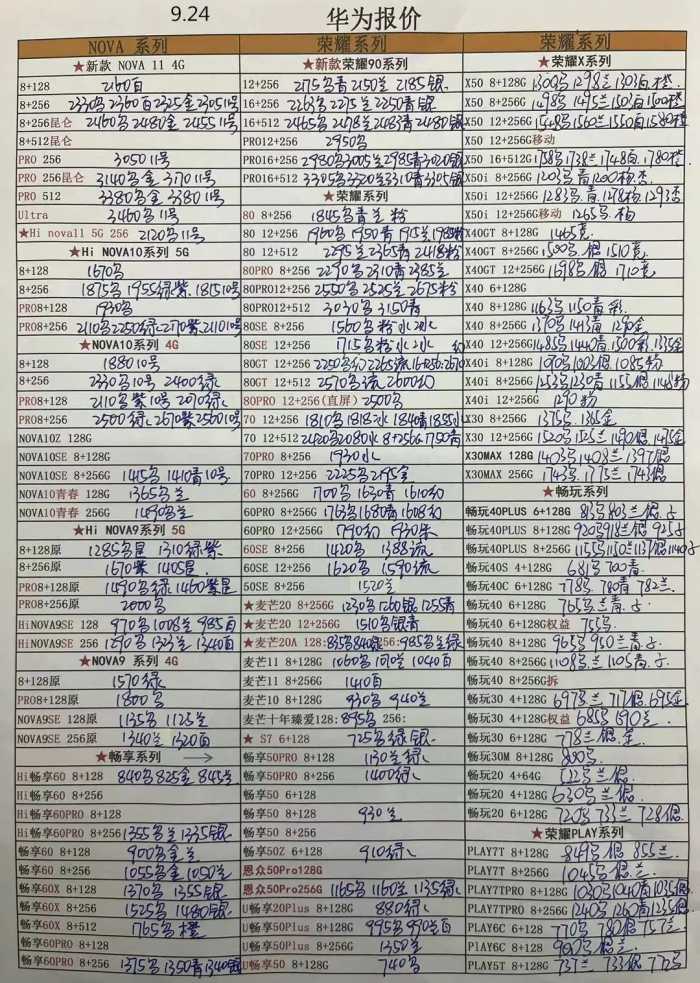 9.24 华为报价
NOVA 系列
★新款 NOVA 11 4G
8+128 2160百
8+256 2330名2360百2325金2305 11号
8+256昆仑 2460名2480金2455 11号
8+512昆仑
PRO 256 3050 11号
PRO 256昆仑 3140名金 3170 11号
PRO 512 3380名金 3380 11号
Ultra 3460名11号
★Hi nova11 5G 256 2120名11号
★Hi NOVA10系列 5G
8+128 1670名
8+256 1875名1955绿紫1815 10号
PRO8+128 1930名
PRO8+256
★NOVA10系列 4G
8+128 1880 10号
8+256 2330名10号 2400绿
PRO8+128 2110名紫10号 2070绿
PRO8+256 2500绿2670紫2560 10号
NOVA10Z 128G
NOVA10SE 8+128G
NOVA10SE 8+256G 1445名1410青10号
NOVA10青春 128G 1365名兰
NOVA10青春 256G 1490名兰
★Hi NOVA9系列 5G
8+128原 1285名星 1310绿紫
8+256原 1670紫 1405星
PRO8+128原 1490名绿1460紫星
PRO8+256原 2000名
HiNOVA9SE 128 970名1008兰985百
HiNOVA9SE 256 1290名1323兰1340百
★NOVA9 系列 4G
8+128原 1570绿
PRO8+128原 1800名
NOVA9SE 128原 1135名 1125兰
NOVA9SE 256原 1340兰 1320百
★畅享系列
Hi畅享60 8+128 840名825金845兰
Hi畅享60 8+256
Hi畅享60PRO 8+128
Hi畅享60PRO 8+256 1355名兰1335银
畅享60 8+128 900名金兰
畅享60 8+256 1055名金1050兰
畅享60X 8+128 1370名 1355银
畅享60X 8+256 1525名1480银
畅享60X 8+512 1765名橙
畅享60PRO 8+128
畅享60PRO 8+256 1375名1350青1340银
荣耀系列
★新款荣耀90系列
12+256 2175名青2150兰 2185银
16+256 2263名2275兰2250青银
16+512 2465名2478兰2483青2480银
PRO12+256 2950名
PRO16+256 2980名3005兰2985青3020银
PRO16+512 3305名3320兰3310青3305银
★荣耀系列
80 8+256 1845名青兰粉
80 12+256 1960名1950青1915兰1985粉
80 12+512 2295兰2365青2418粉
80PRO 8+256 2290名2310青2385兰
80PRO12+256 2550名2525兰2675粉
80PRO12+512 3030名3150青
80SE 8+256 1560名粉水
80SE 12+256 1715名粉水
80GT 12+256
80GT 12+512 2570名流2600幻
80PRO 12+256(直屏) 2500名
70 12+256 1810名1818水1840青1855
70 12+512 2420名2080水 8+256G 1750青
70PRO 8+256 1930水
70PRO 12+256 2225名2195金
60 8+256G 1700名1630青1610幻
60PRO 8+256G 1763名1680青1608幻
60PRO 12+256 1790幻 1930朱
60SE 8+256 1420名 1388流
60SE 12+256 1620名1590流
50SE 8+256 1520兰
★麦芒20 8+256G 1230名1260银1255青
★麦芒20 12+256G 1510名银青
★麦芒20A 128:835名840绿256:985名兰绿
麦芒11 8+128G 1060名1070兰1040百
麦芒11 8+256G 1410百
麦芒10 8+128G 930名 940兰
麦芒十年臻爱128:895名 256:
★ S7 6+128 725名绿银
畅享50PRO 8+128 1130兰绿
畅享50PRO 8+256 1400绿
畅享50 6+128
畅享50 8+128 930兰
畅享50 8+256
畅享50Z 6+128 910绿
恩众50Pro128G
恩众50Pro256G 1165名1160兰1135绿
U畅享20Plus 8+128G 880绿
U畅享50Plus 8+128G 995名970兰百
U畅享50Plus 8+256G 1350兰
U畅享50 8+128G 740名
荣耀系列
★荣耀X系列
X50 8+128G 1300名1298兰1303百橙
X50 8+256G 1498名1495兰1503百1500橙
X50 12+256G 1548名1560兰1550百1580橙
X50 12+256G移动
X50 16+512G 1758名1738兰1748百1780橙
X50i 8+256G 1203名青1200杨杏
X50i 12+256G 1283名青1278杨1293杏
X50i 12+256G移动 1265名杨
X40GT 8+128G 1465竞
X40GT 8+256G 1500名银1510竞
X40GT 12+256G 1698名银1710竞
X40 6+128G
X40 8+128G 1163名1150青彩
X40 8+256G 1370名1413青1290金
X40 12+256G 1485名1440青1500彩1335金
X40i 8+128G 1090名1003银1085粉
X40i 8+256G 1253名1230青1155银1148粉
X40i 12+256G 1290粉
X30 8+256G 1375名1365金
X30 12+256G 1520名1525兰1490银1475金
X30MAX 128G 1403名1408兰1397银
X30MAX 256G 1743名1775兰1743银
★畅玩系列
畅玩40PLUS 6+128G 813名803兰银
畅玩40PLUS 8+128G 920名918兰银925
畅玩40PLUS 8+256G 1155名1150兰1137银1140
畅玩40S 4+128G 681名700青
畅玩40C 6+128G 778名780青782兰
畅玩40 6+128G 765名兰青
畅玩40 6+128G权益 755名
畅玩40 8+128G 965名950兰青
畅玩40 8+256G 1108名兰1105青
畅玩40 8+256G拆
畅玩30 4+128G 697名兰717银695金
畅玩30 4+128G权益 685名690兰
畅玩30 6+128G 778兰银金
畅玩30M 8+128G 800名
畅玩20 4+64G 522名兰银
畅玩20 4+128G 630名兰银
畅玩20 6+128G 720名733兰728银
★荣耀PLAY系列
PLAY7T 8+128G 849名银855兰
PLAY7T 8+256G 1045名银兰
PLAY7TPRO 8+128G 1030名1040青1035银
PLAY7TPRO 8+256G 1240名1260青1235银
PLAY6C 6+128 770名780银757兰
PLAY6C 8+128G 900名银兰
PLAY5T 8+128G 737兰 733银 772名